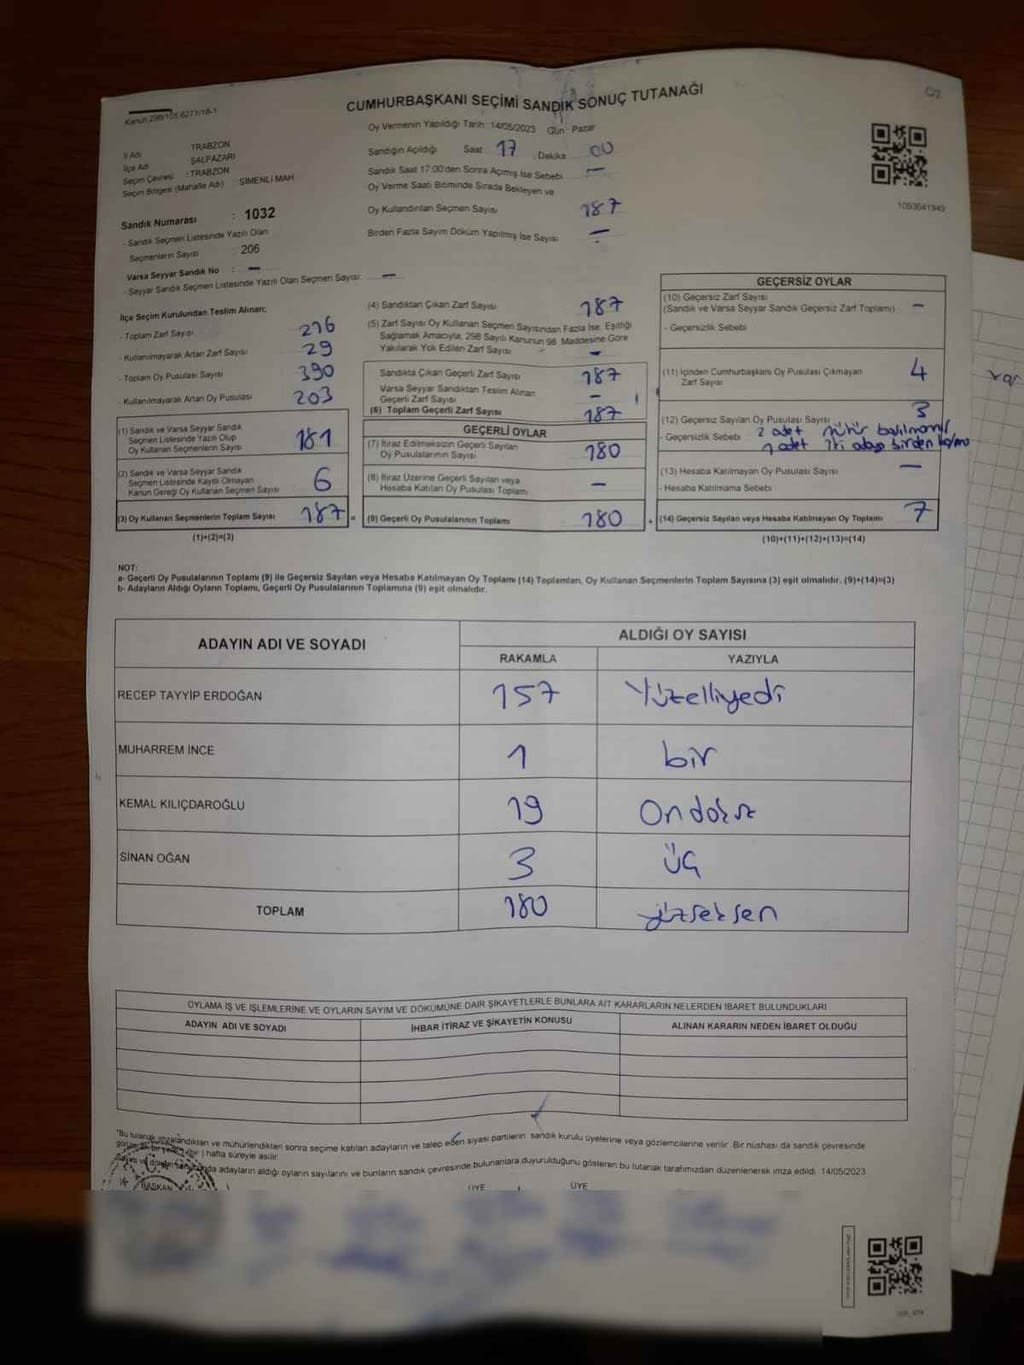 CUMHURBAŞKANI SEÇİMİ SANDIK SONUÇ TUTANAĞI
Kanun 298/105.6271/18-1
Oy Vermenin Yapıldığı Tarih: 14/05/2023 Gün: Pazar
İl Adı TRABZON
İlçe Adı ŞALPAZARI
Seçim Çevresi : TRABZON
Seçim Bölgesi (Mahalle Adı) SİMENLİ MAH
Sandığın Açıldığı Saat 17 Dakika 00
Sandık Saat 17:00'den Sonra Açımış İse Sebebi –
Oy Verme Saati Bitiminde Sırada Bekleyen ve
Oy Kullandırılan Seçmen Sayısı 187
Birden Fazla Sayım Döküm Yapılmış İse Sayısı –
1093641945
Sandık Numarası : 1032
- Sandık Seçmen Listesinde Yazılı Olan
Seçmenlerin Sayısı 206
Varsa Seyyar Sandık No : –
- Seyyar Sandık Seçmen Listesinde Yazılı Olan Seçmen Sayısı –
İlçe Seçim Kurulundan Teslim Alınan;
- Toplam Zarf Sayısı
- Kullanılmayarak Artan Zarf Sayısı 29
- Toplam Oy Pusulası Sayısı 390
- Kullanılmayarak Artan Oy Pusulası 203
(1) Sandık ve Varsa Seyyar Sandık
Seçmen Listesinde Yazılı Olup
Oy Kullanan Seçmen Sayısı 181
(2) Sandık ve Varsa Seyyar Sandık
Seçmen Listesinde Kayıtlı Olmayan
Kanun Gereği Oy Kullanan Seçmen Sayısı 6
(3) Oy Kullanan Seçmenlerin Toplam Sayısı 187 =
(1)+(2)=(3)
(4) Sandıktan Çıkan Zarf Sayısı 187
(5) Zarf Sayısı Oy Kullanan Seçmen Sayısından Fazla İse, Eşitliği
Sağlamak Amacıyla, 298 Sayılı Kanunun 98. Maddesine Göre
Yakılarak Yok Edilen Zarf Sayısı –
Sandıkta Çıkan Geçerli Zarf Sayısı 187
Varsa Seyyar Sandıktan Teslim Alınan
Geçerli Zarf Sayısı –
(6) Toplam Geçerli Zarf Sayısı 187
GEÇERLİ OYLAR
(7) İtiraz Edilmeksizin Geçerli Sayılan
Oy Pusulalarının Sayısı 180
(8) İtiraz Üzerine Geçerli Sayılan veya
Hesaba Katılan Oy Pusulası Toplamı –
(9) Geçerli Oy Pusulalarının Toplamı 180 +
GEÇERSİZ OYLAR
(10) Geçersiz Zarf Sayısı
(Sandık ve Varsa Seyyar Sandık Geçersiz Zarf Toplamı) –
- Geçersizlik Sebebi
(11) İçinden Cumhurbaşkanı Oy Pusulası Çıkmayan
Zarf Sayısı 4
(12) Geçersiz Sayılan Oy Pusulası Sayısı 3
- Geçersizlik Sebebi 2 adet mühür
1 adet iki adaya birden
(13) Hesaba Katılmayan Oy Pusulası Sayısı –
- Hesaba Katılmama Sebebi
(14) Geçersiz Sayılan veya Hesaba Katılmayan Oy Toplamı 7
(10)+(11)+(12)+(13)=(14)
NOT:
a- Geçerli Oy Pusulalarının Toplamı (9) ile Geçersiz Sayılan veya Hesaba Katılmayan Oy Toplamı (14) Toplamları, Oy Kullanan Seçmenlerin Toplam Sayısına (3) eşit olmalıdır. (9)+(14)=(3)
b- Adayların Aldığı Oyların Toplamı, Geçerli Oy Pusulalarının Toplamına (9) eşit olmalıdır.
ADAYIN ADI VE SOYADI
ALDIĞI OY SAYISI
RAKAMLA YAZIYLA
RECEP TAYYİP ERDOĞAN 157 Yüzelliyedi
MUHARREM İNCE 1 bir
KEMAL KILIÇDAROĞLU 19 Ondokuz
SİNAN OĞAN 3 üç
TOPLAM 180 yüzseksen
OYLAMA İŞ VE İŞLEMLERİNE VE OYLARIN SAYIM VE DÖKÜMÜNE DAİR ŞİKAYETLERLE BUNLARA AİT KARARLARIN NELERDEN İBARET BULUNDUKLARI
ADAYIN ADI VE SOYADI İHBAR İTİRAZ VE ŞİKAYETİN KONUSU ALINAN KARARIN NEDEN İBARET OLDUĞU
"Bu tutanak imzalandıktan ve mühürlendikten sonra seçime katılan adayların ve talep eden siyasi partilerin sandık kurulu üyelerine veya gözlemcilerine verilir. Bir nüshası da sandık çevresinde
bir ) hafta süreyle asılır.
adayların aldığı oyların sayılarını ve bunların sandık çevresinde bulunanlara duyurulduğunu gösteren bu tutanak tarafımızdan düzenlenerek imza edildi. 14/05/2023
BAŞKAN ÜYE ÜYE